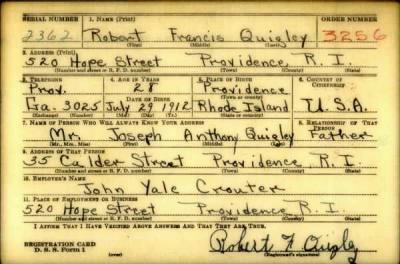 SERIAL NUMBER 1. NAME (Print) ORDER NUMBER
2362 Robert Francis Quigley 3256
(First) (Middle) (Last)
2. ADDRESS (Print)
520 Hope Street Providence, R. I.
(Number and street or R. F. D. number) (Town) (County) (State)
3. TELEPHONE 4. AGE IN YEARS 5. PLACE OF BIRTH 6. COUNTRY OF CITIZENSHIP
Prov. 28 Providence
DATE OF BIRTH (Town or county)
Ga. 3025 July 29 1912 Rhode Island U.S.A.
(Exchange) (Number) (Mo.) (Day) (Yr.) (State or country)
7. NAME OF PERSON WHO WILL ALWAYS KNOW YOUR ADDRESS 8. RELATIONSHIP OF THAT PERSON
Mr. Joseph Anthony Quigley Father
(Mr., Mrs., Miss) (First) (Middle) (Last)
9. ADDRESS OF THAT PERSON
35 Calder Street Providence, R. I.
(Number and street or R. F. D. number) (Town) (County) (State)
10. EMPLOYER'S NAME
John Yale Crouter
11. PLACE OF EMPLOYMENT OR BUSINESS
520 Hope Street Providence R. I.
(Number and street or R. F. D. number) (Town) (County) (State)
I AFFIRM THAT I HAVE VERIFIED ABOVE ANSWERS AND THAT THEY ARE TRUE.
REGISTRATION CARD
D. S. S. Form 1 (over) Robert F Quigley
(Registrant's signature)